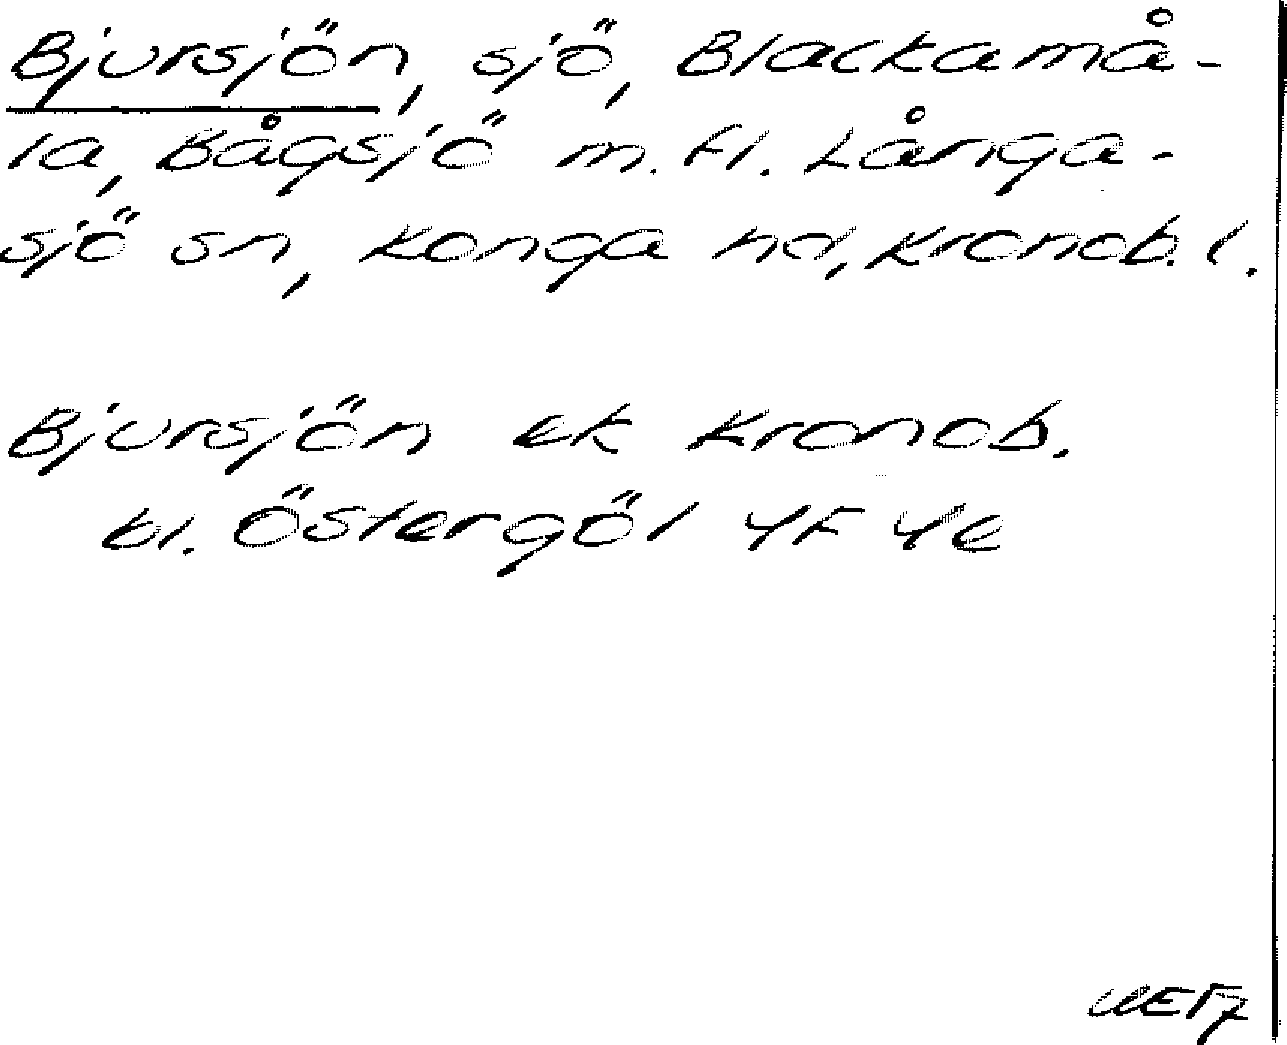 Bjursjön, sjö, Blackamå-
la, Bågsjö m. fl. Långa-
sjö sn, Konga hd, Kronob. l.
Bjursjön ek Kronob.
bl. Östergöl 4F 4e